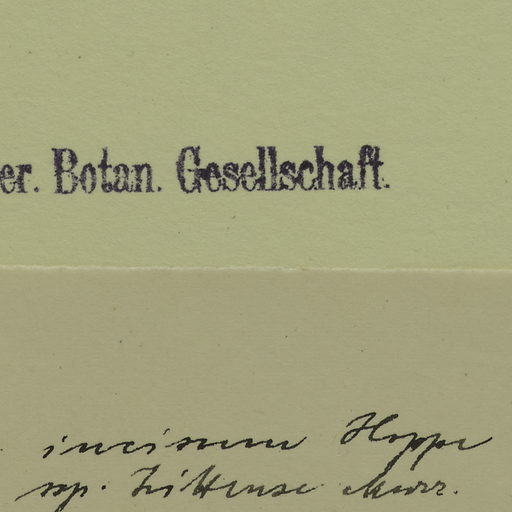 er. Botan. Gesellschaft.
incisum Hoppe
ssp. Murr.